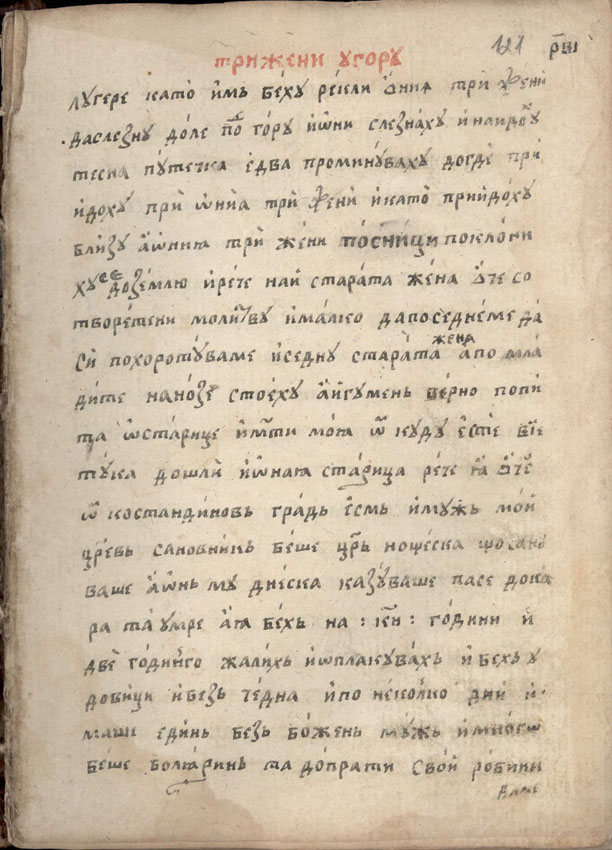 трижени угору
121 рк҃і
лугере като̀ и҆мъ бѣху рекли ѻ҆нїа три̏ жени
даслезну до́ле по гору и҆ѡ҆ни слезнаху и҆наидоу
тесна пꙋтечка е҆два проминꙋваху догде при
и҆дохꙋ при ѡ҆нїа три жени и҆като̀ прїидо́хꙋ
близꙋ а҆ѡнїѧ три жени посници поклони
хꙋсе доземлю и҆рече най старата жена ѿче со
творетени молитвꙋ и҆малко дапоседнеме да
си похоротꙋваме и҆седнꙋ старата жена апо мла
дите нано́зе стое́хꙋ а҆игꙋмень верно попи
та ѡ҆старице и҆мт҃и моѧ ѿ кꙋдꙋ е҆сте вїе
тꙋка дошли и҆ѡнаѧ старица рече ѿче
ѿ костандиновь градь е҆смь и҆мꙋжь мой
цр҃евь сановникь беше цр҃ь ношеска
ваше а҆ѡнь мꙋ днеска казꙋваше пасе дока
ра таꙋмре аѧ бехь на : кн҃ : години и҆
две годинго жалихь и҆ѡплакꙋвахь и҆бехь ꙋ
довици и҆безь чедна и҆по неколко дни и҆
маше единь безь божень мꙋжь и҆многѡ
беше болѧринь та допрати свои робини
ваме